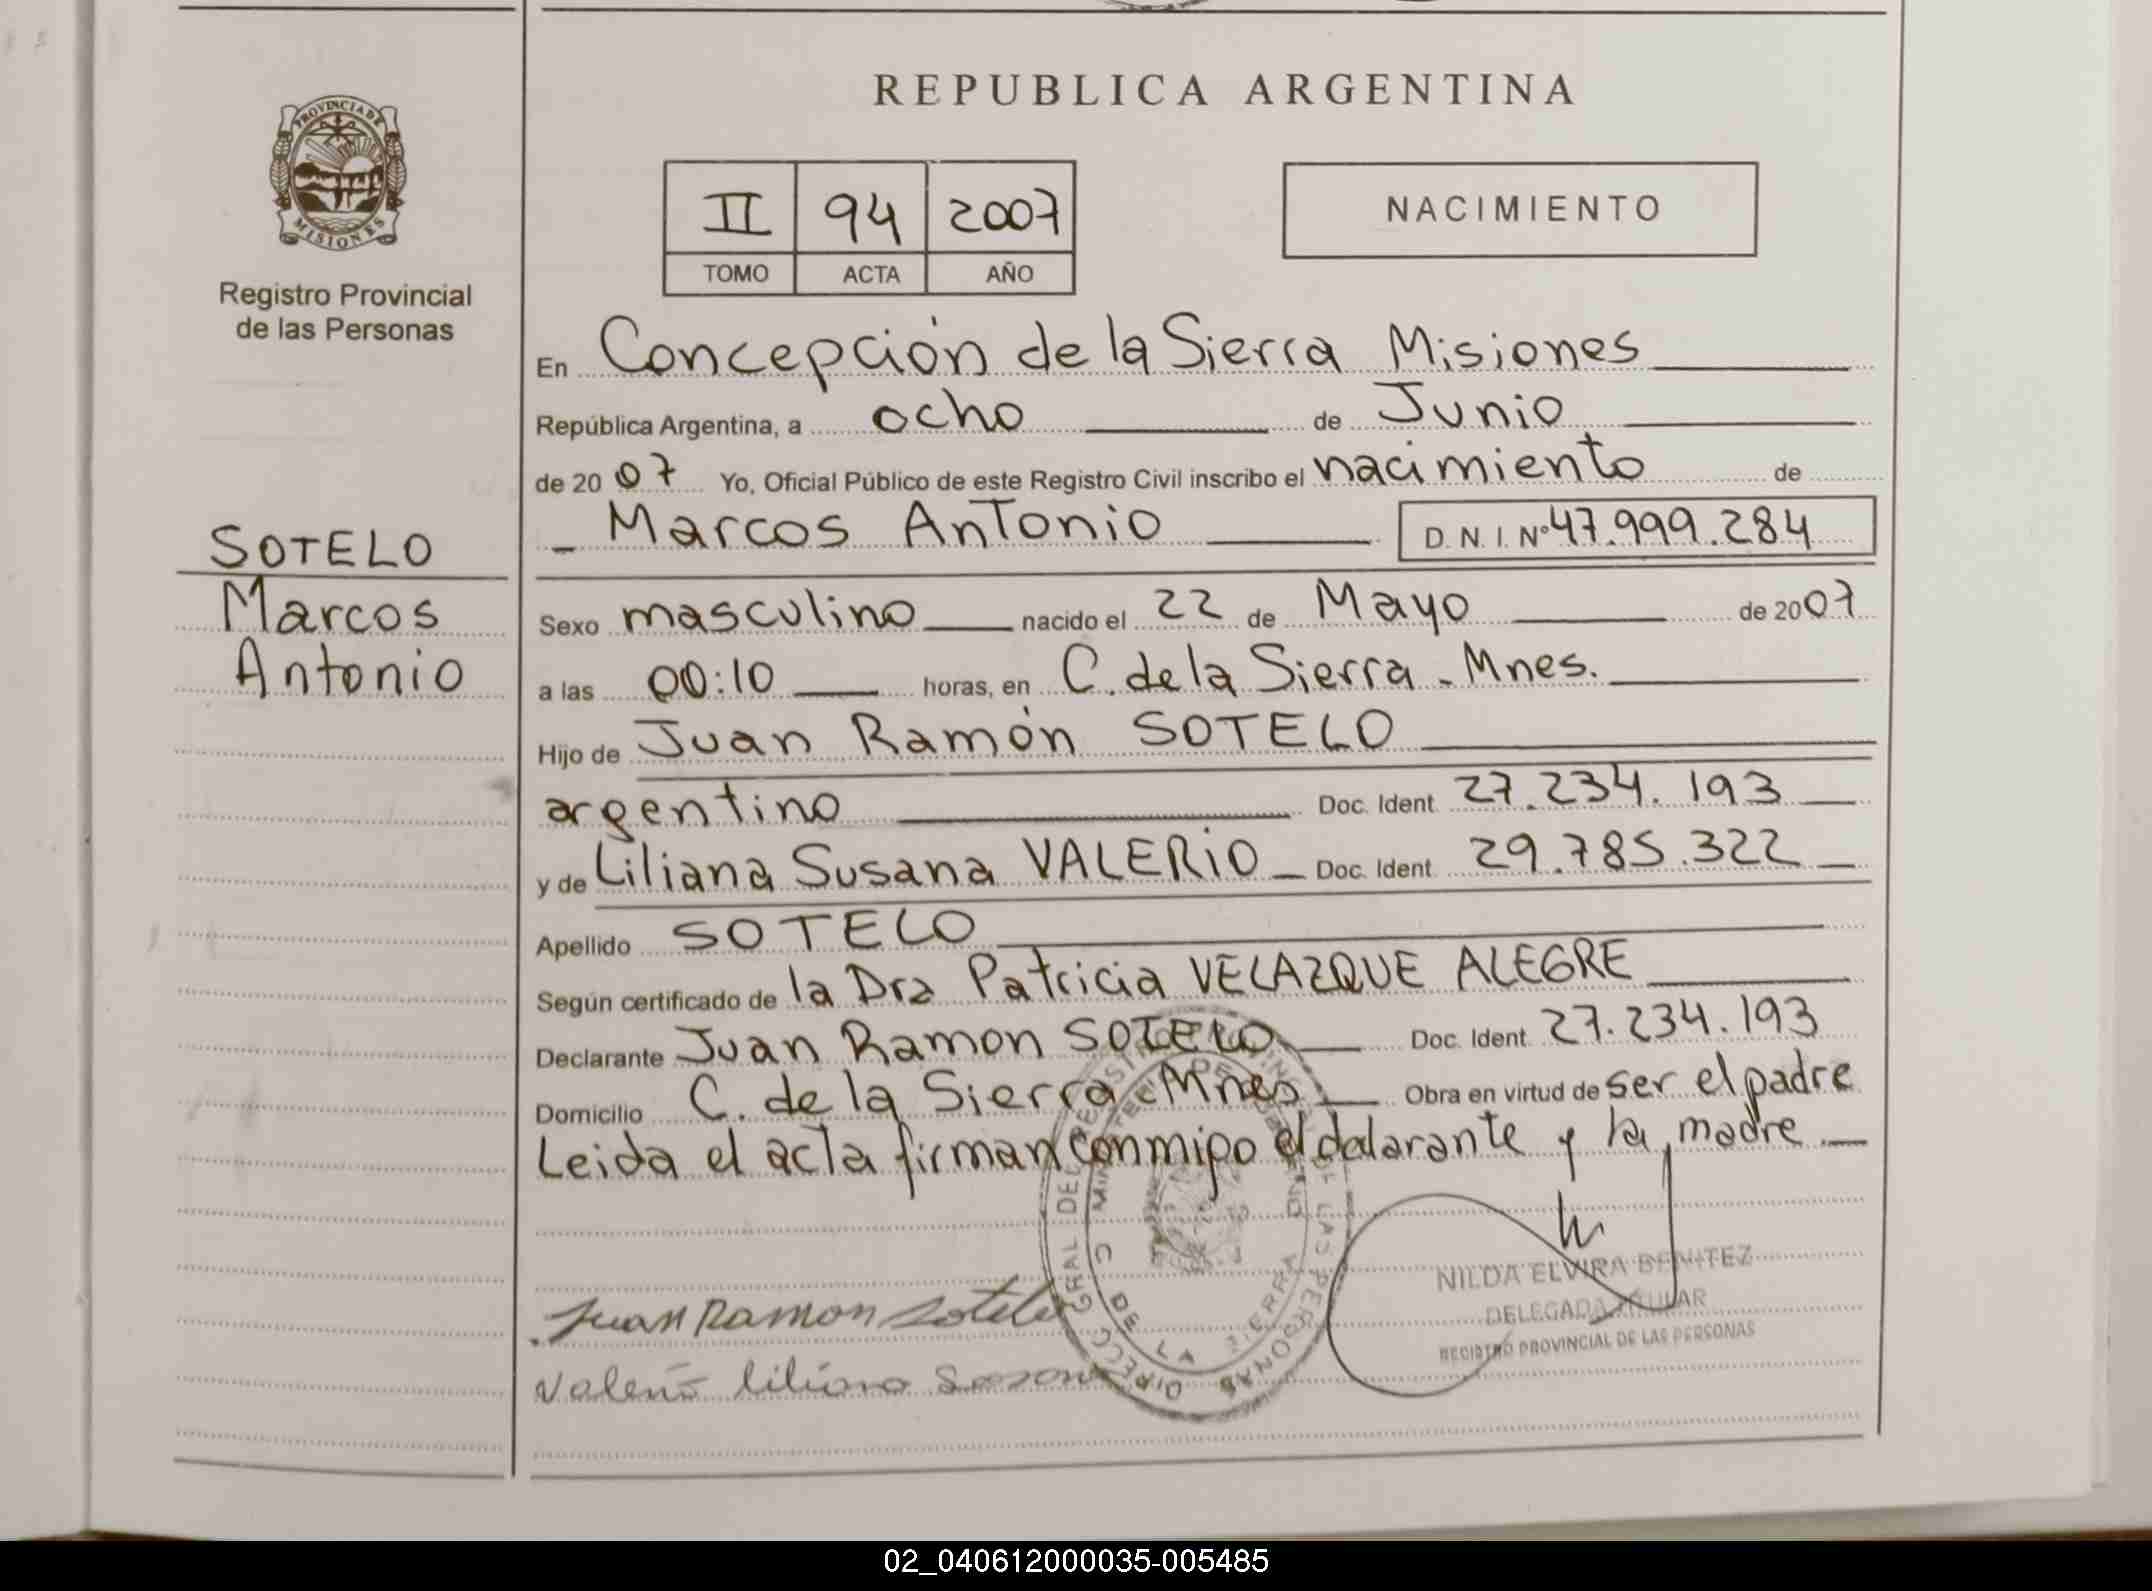 REPUBLICA ARGENTINA
PROVINCIA DE MISIONES
Registro Provincial
de las Personas
II 94 2007
TOMO ACTA AÑO
NACIMIENTO
En Concepción de la Sierra Misiones
República Argentina, a ocho de Junio
de 2007 Yo, Oficial Público de este Registro Civil inscribo el nacimiento de
Marcos Antonio D. N. I. Nº 47.999.284
SOTELO
Marcos
Antonio
Sexo masculino nacido el 22 de Mayo de 2007
a las 00:10 horas, en C. de la Sierra - Mnes.
Hijo de Juan Ramón SOTELO
argentino Doc. Ident. 27.234.193
y de Liliana Susana VALERIO Doc. Ident. 29.785.322
Apellido SOTELO
Según certificado de la Dra Patricia VELAZQUE ALEGRE
Declarante Juan Ramon SOTELO Doc. Ident. 27.234.193
Domicilio C. de la Sierra Mnes Obra en virtud de ser el padre
Leida el acta firman conmigo el dalarante y la madre
Juan Ramon Sotelo
Valerio Liliana Susana
DIRECC GRAL DEL REGISTRO PROVINCIAL DE LAS PERSONAS
C DE LA SIERRA
NILDA ELVIRA BENITEZ
DELEGADA TITULAR
REGISTRO PROVINCIAL DE LAS PERSONAS
02_040612000035-005485